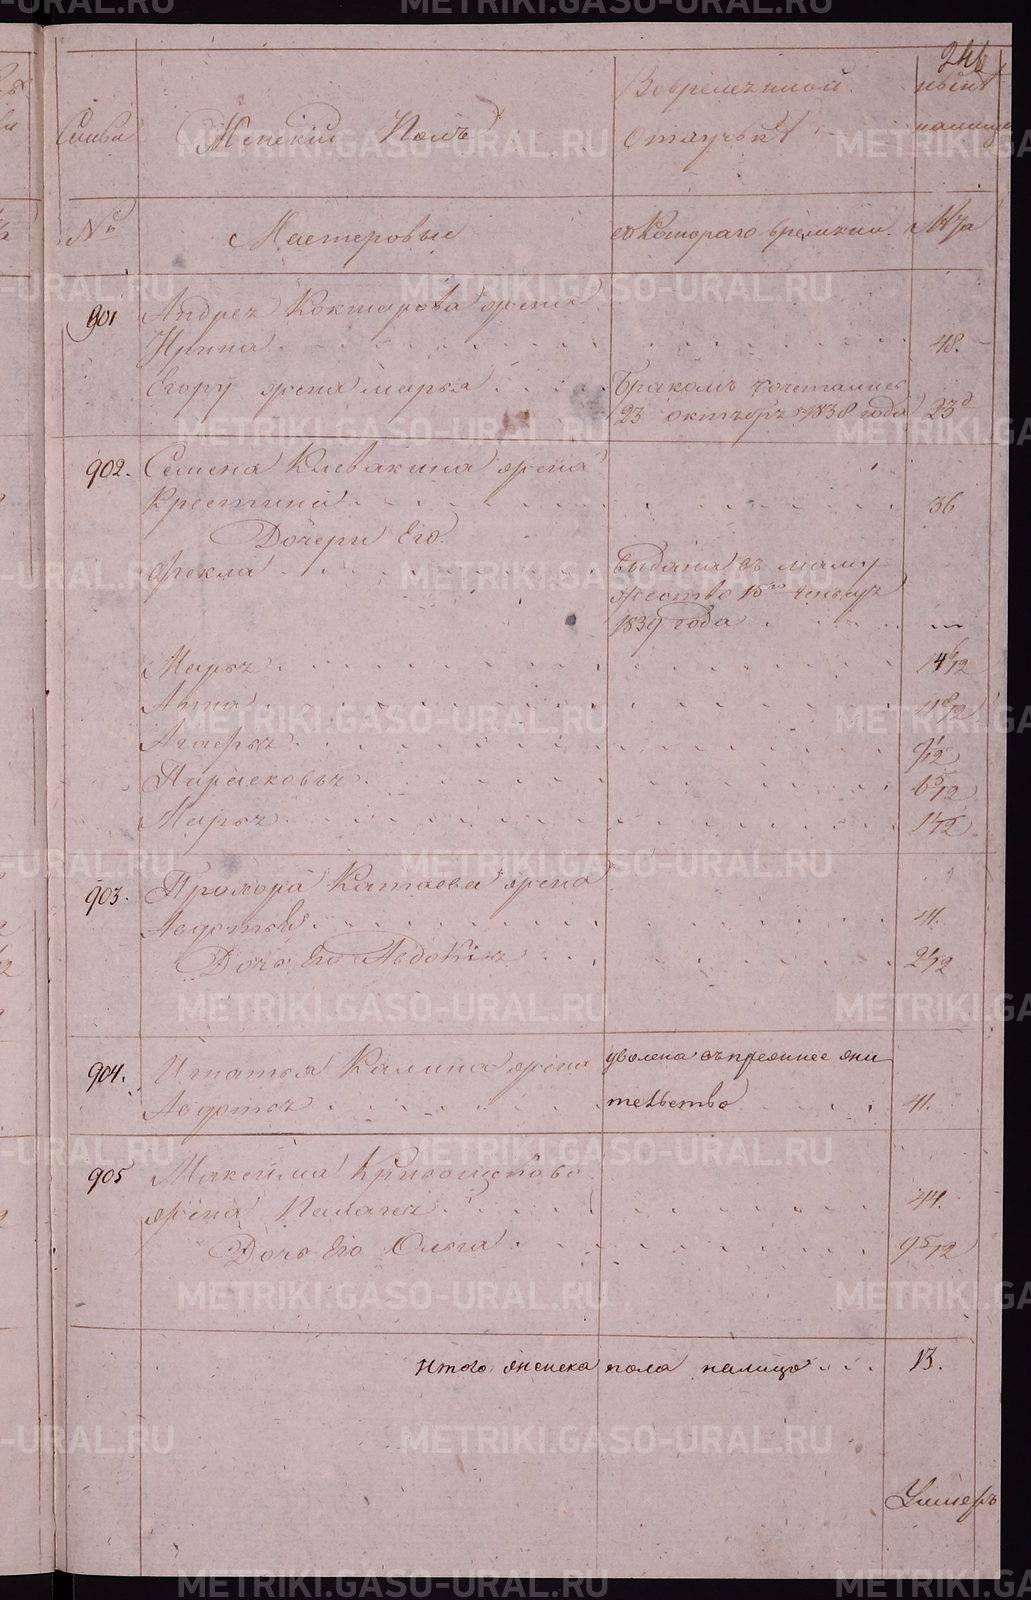 Семьи Женский Полъ Во временной отлучкѣ нынѣ на лицо
№ Мастеровые съ Котораго времени Лѣта
901 Андрея Коктарова жена
Ирина 48.
Егору жена марья Бракомъ сочетались
23 октября 1838 года 23
902. Семена Клевакина жена
Крестина 36
Дочери Его
Фекла выдана въ замужество 15го Генваря
1839 года
Марья 14 /12
Анна
Агафья
Парасковья
Марья
903. Прохора Катаева жена
Авдотья 41.
Дочь Его Авдокія
904. Игнатья Калина жена уволена въ
Авдотья 41.
905 Максима Кривощекова
жена Палагея 44.
Дочь Его Ольга 9 5/12
Итого женска пола налицо 13.
Умшеръ
METRIKI.GASO-URAL.RU